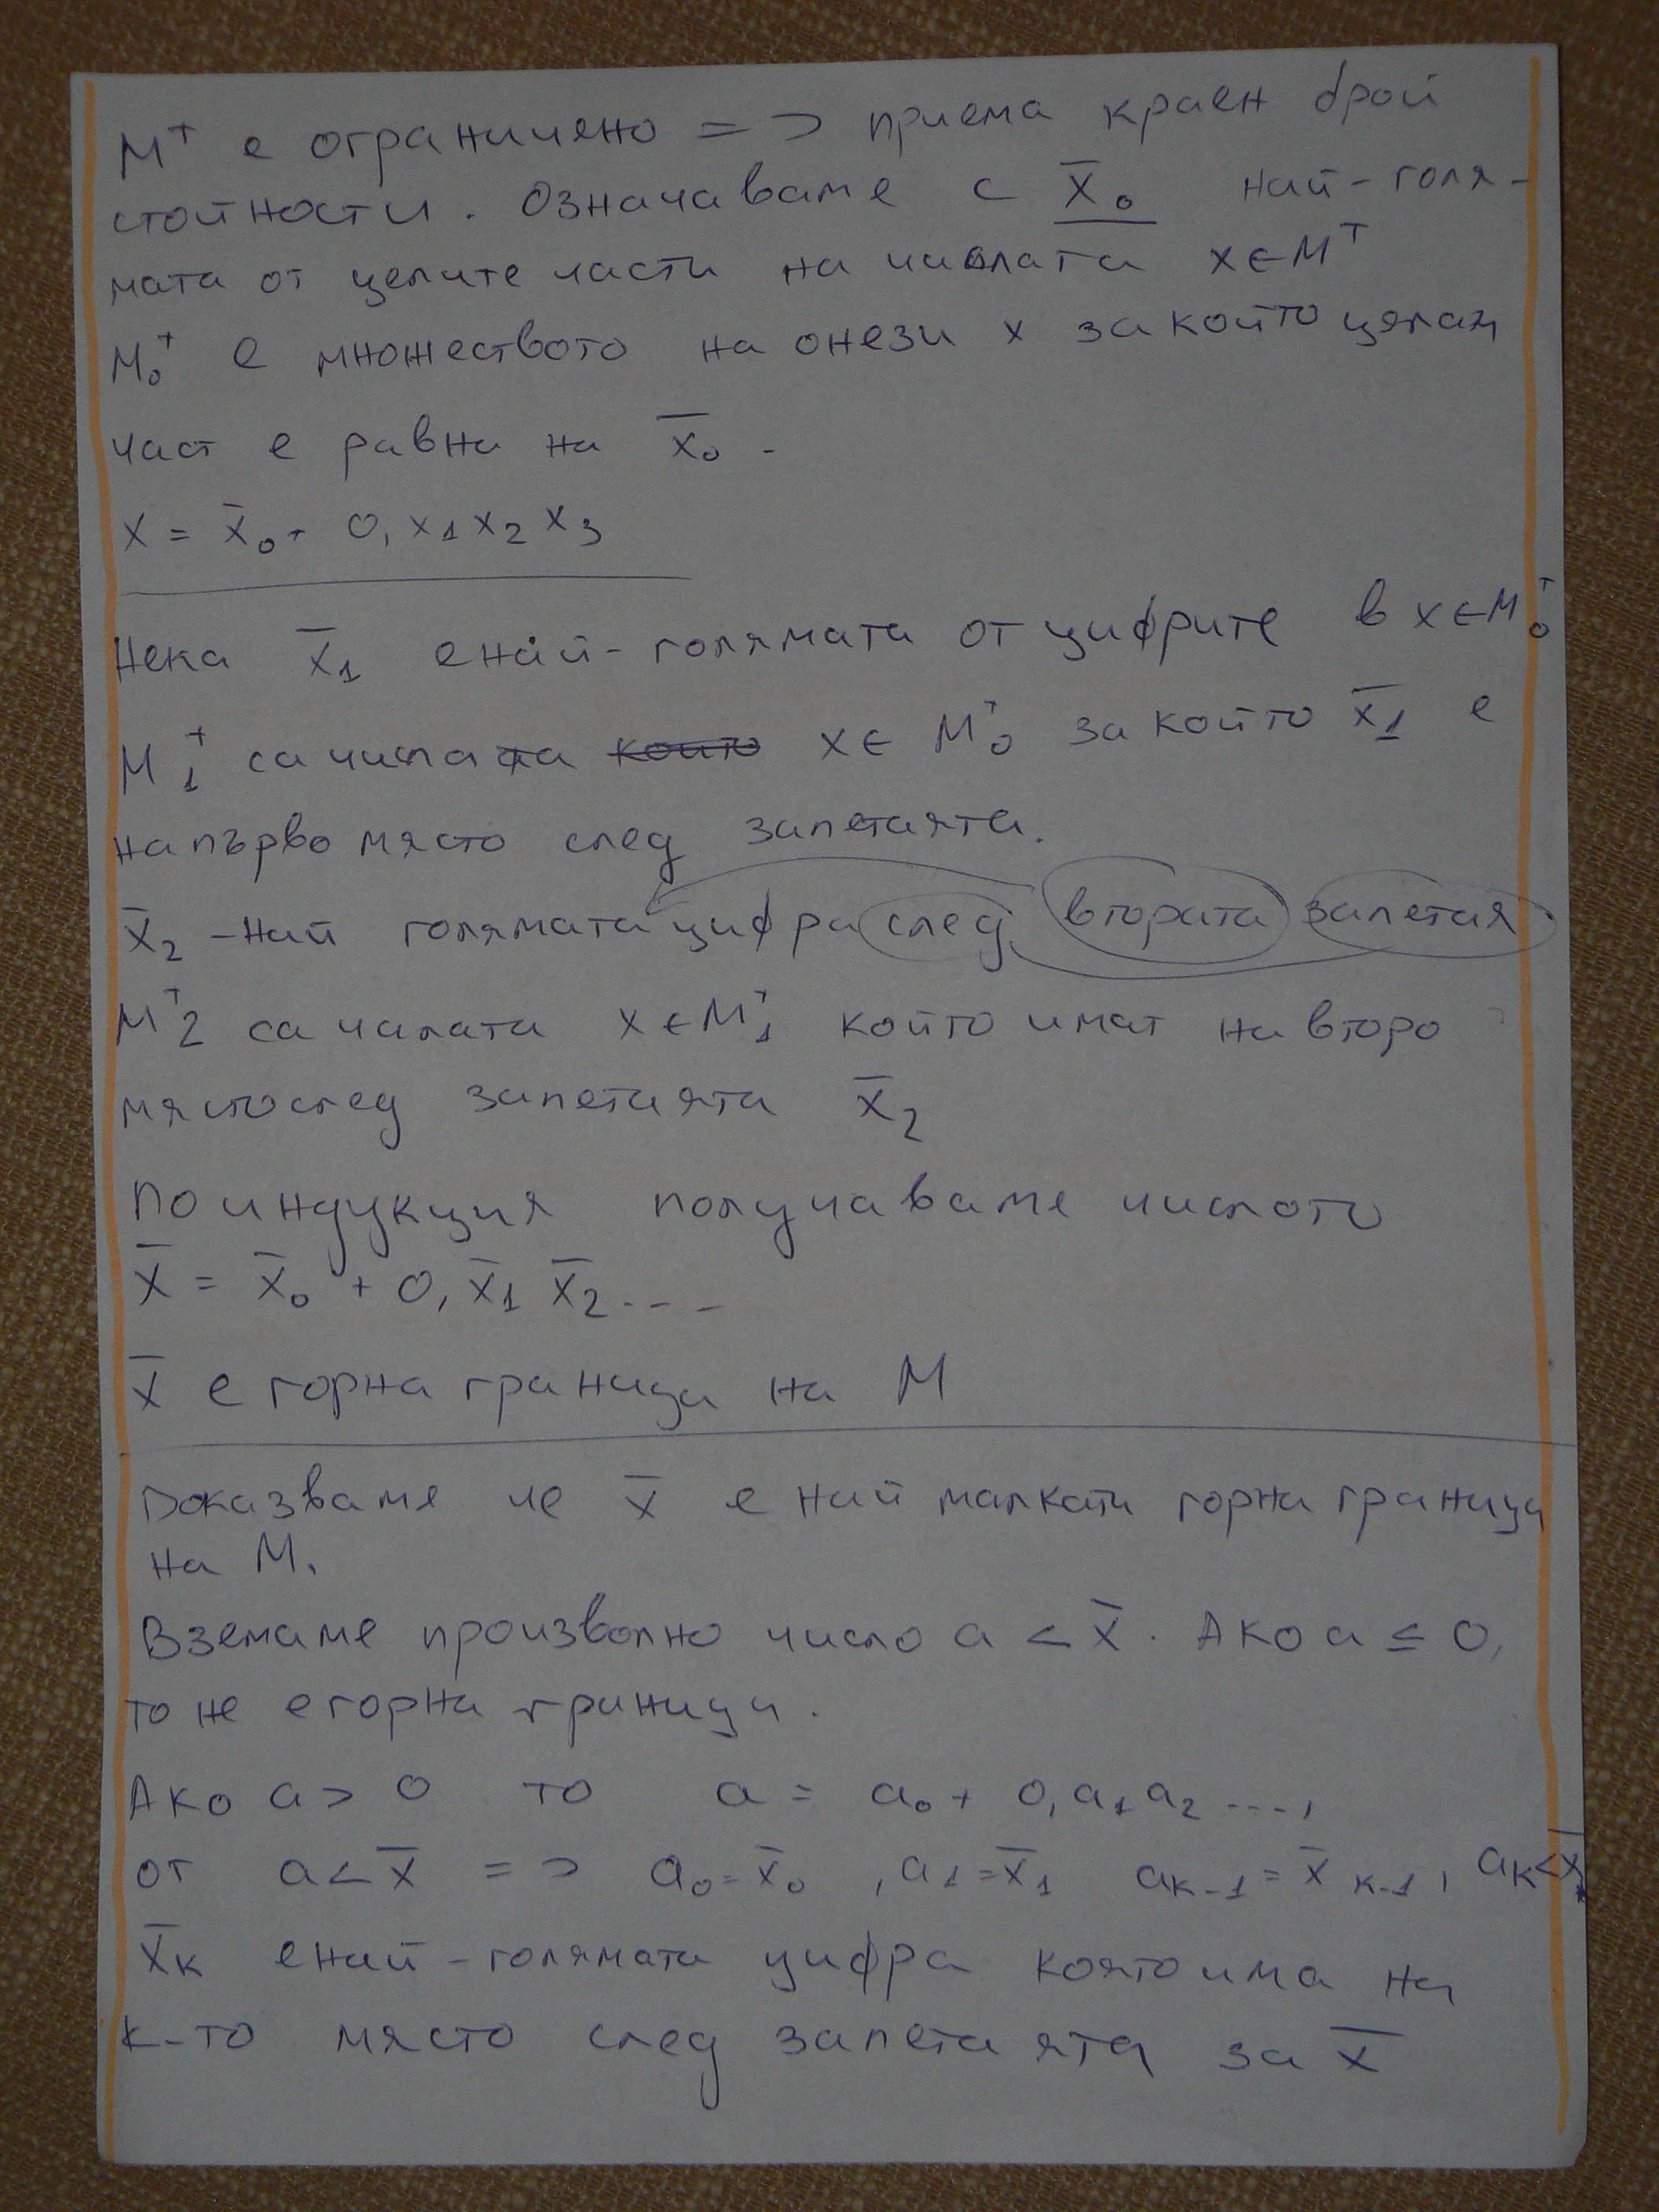 M⁺ е ограничено => приема краен брой
стойности. Означаваме с x̄₀ най-голя-
мата от целите части на числата x∈M⁺
M₀⁺ е множеството на онези x за който цялат
част е равна на x̄₀.
x = x̄₀ + 0,x₁x₂x₃
Нека x̄₁ е най-голямата от цифрите в x∈M₀⁺
M₁⁺ са числата които x∈ M₀⁺ за който x̄₁ е
на първо място след запетаята.
x̄₂ - най голямата цифра след втората запетая
M₂⁺ са числата x∈M₁⁺ който имат на второ
място след запетаята x̄₂
По индукция получаваме числото
x̄ = x̄₀ + 0,x̄₁x̄₂...
x̄ е горна граница на M
Доказваме че x̄ е най малката горна граница
на M.
Вземаме произволно число a < x̄. Ако a ≤ 0,
то не е горна граница.
Ако a > 0 то a = a₀ + 0,a₁a₂....,
от a < x̄ => a₀=x̄₀ ,a₁=x̄₁ aₖ₋₁=x̄ₖ₋₁, aₖ<x̄ₖ
x̄ₖ е най-голямата цифра която има на
к-то място след запетаята за x̄